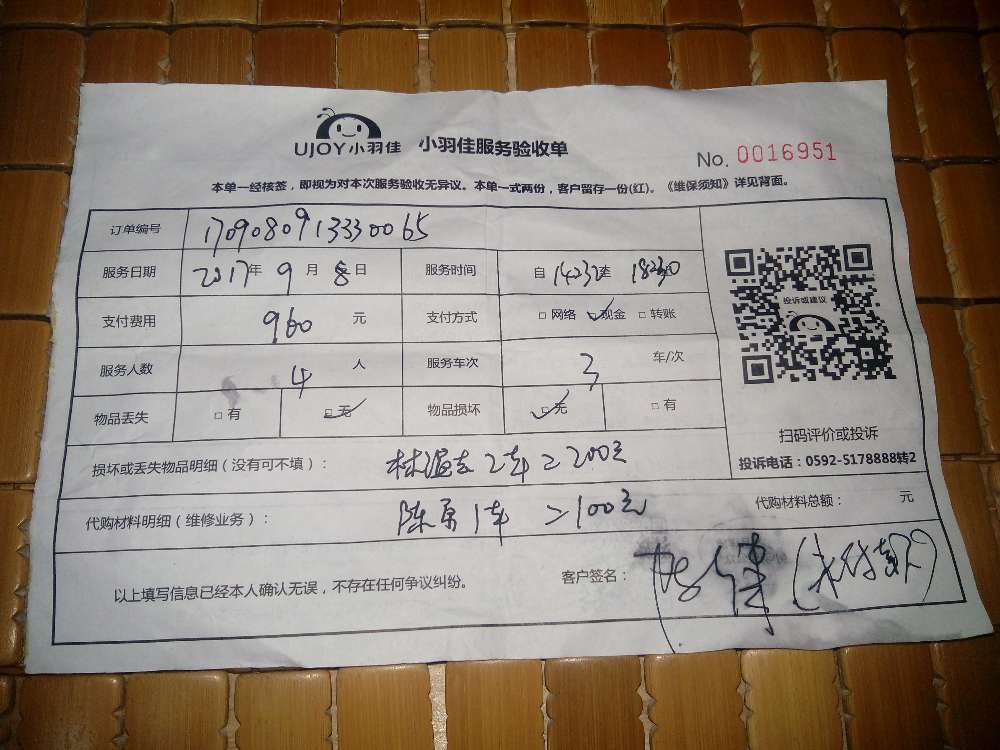 UJOY小羽佳 小羽佳服务验收单
No. 0016951
本单一经核签，即视为对本次服务验收无异议。本单一式两份，客户留存一份(红)。《维保须知》详见背面。
订单编号 1709080913330065
服务日期 2017年9月8日 服务时间 自14:32至18:30
支付费用 960元 支付方式 □网络 ✓现金 □转账
服务人数 4人 服务车次 3车/次
物品丢失 □有 ☑无 物品损坏 ☑无 □有
投诉或建议
扫码评价或投诉
投诉电话：0592-5178888转2
损坏或丢失物品明细（没有可不填）： 2车=200元
代购材料明细（维修业务）： 1车=100元 代购材料总额： 元
以上填写信息已经本人确认无误，不存在任何争议纠纷。 客户签名：